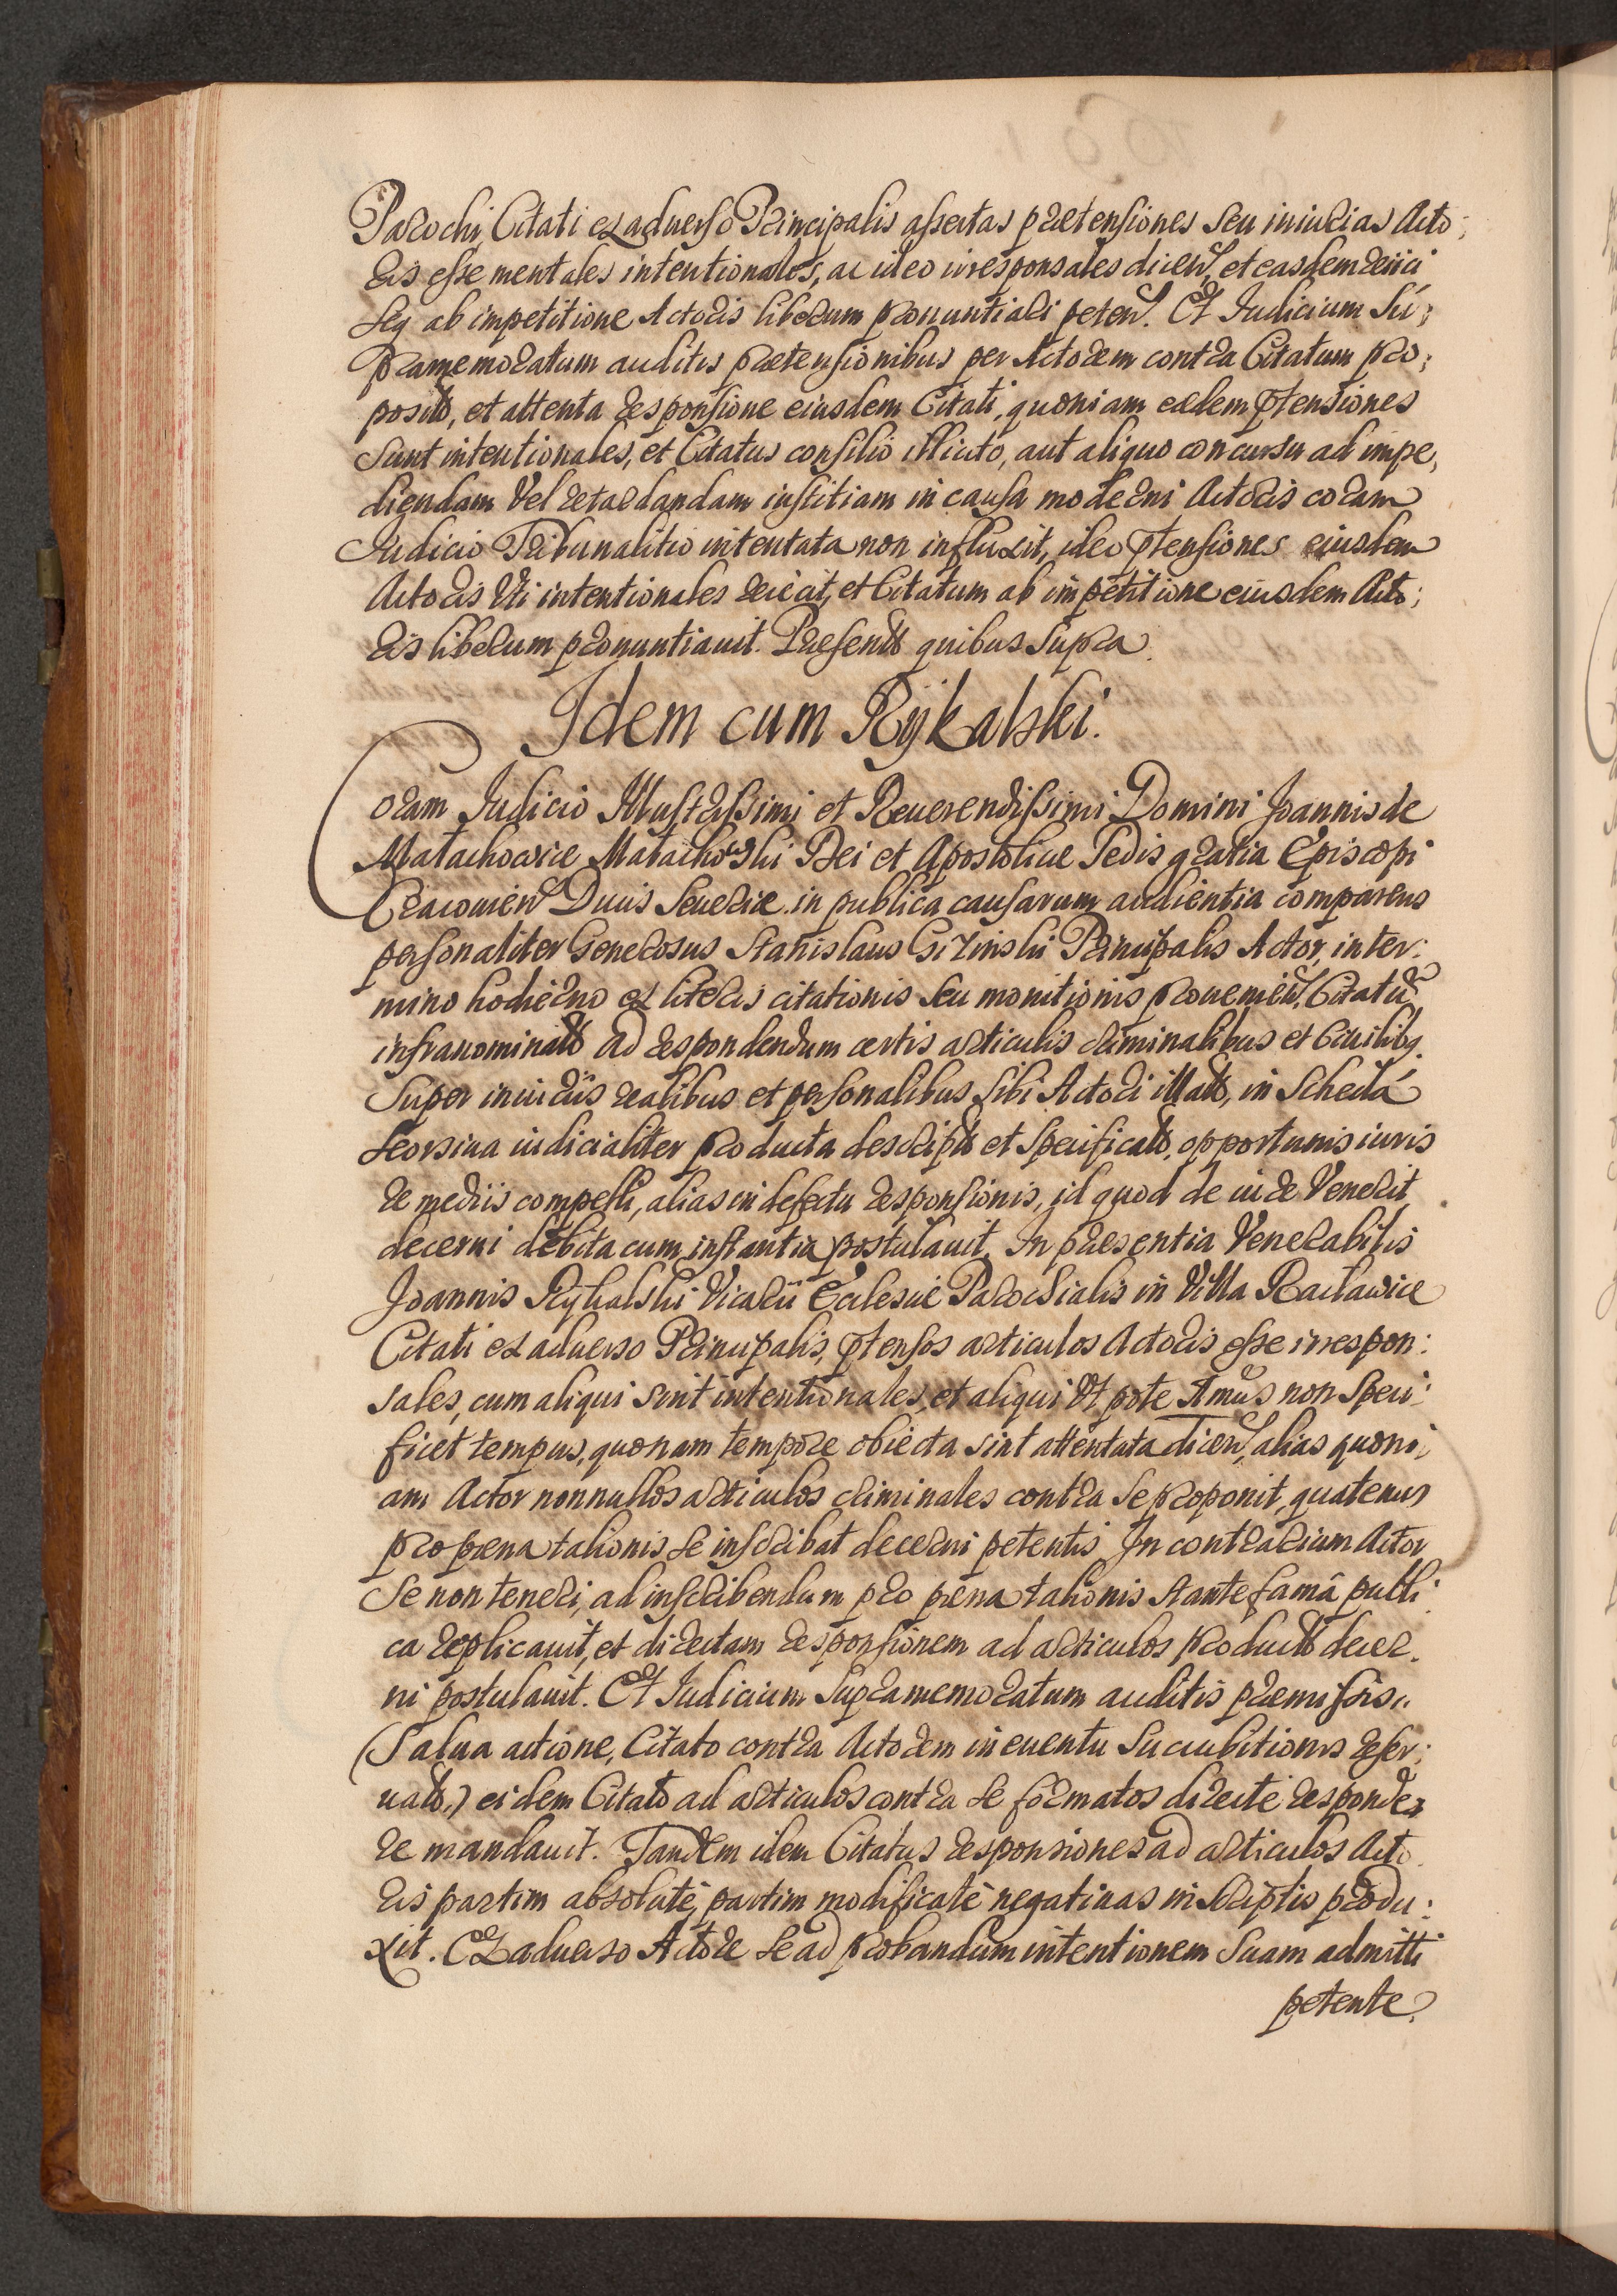 Parochi, Citati ex aduerso Principalis assertas praetensiones seu iniurias Acto,
ris esse mentales intentionales, ac ideo irresponsales dicen, et easdem reiici
seq ab impetitione Actoris liberum pronuntiari peten. Et Judicium Su;
pramemoratum auditis praetensionibus per Actorem contra Citatum pro;
posit, et attenta responsione eiusdem Citati, quoniam eaedem ptensiones
sunt intentionales, et Citatus consilio illicito, aut aliquo concursu ad impe,
diendam vel retardandam iustitiam in causa moderni Actoris coram
Judicio Tribunalitio intentata non influxit, ideo ptensiones eiusdem
Actoris uti intentionales reiecit, et Citatum ab impetitione eiusdem Acto;
ris liberum pronuntiauit. Praesent quibus supra.
Idem cum Rÿkalski.
Coram Judicio Illustrissimi et Reuerendissimi Domini Joannis de
Małachowice Małachowski Dei et Apostolicae Sedis gratia Episcopi
Cracouien Ducis Seueriae in publica causarum audientia comparens
personaliter Generosus Stanislaus Giżinski Principalis Actor, inter:
mino hodierno ex literis citationis seu monitionis prouenien, Citatu
infranominat ad respondendum certis articulis criminalibus et Ciuilibq
super iniuriis realibus et personalibus sibi Actori illat, in Scheda
seorsiua iudicialiter producta descript et specificat, opportunis iuris
remediis compelli, alias in defectu responsionis, id quod de iure venerit
decerni debita cum instantia postulauit. In praesentia Venerabilis
Joannis Rÿkalski Vicarii Ecclesiae Parochialis in Villa Racławice
Citati ex aduerso Principalis, ptensos articulos Actoris esse irrespon:
sales, cum aliqui sint intentionales, et aliqui ut pote non speci:
ficet tempus, quonam tempore obiecta sint attentata dicen, alias quoni,
am Actor nonnullos articulos criminales contra se proponit, quatenus
pro paena talionis se inscribat decerni petentis. In contrarium Actor
se non teneri, ad inscribendum pro paena talionis stante famâ publi
ca replicauit, et directam responsionem ad articulos product decer.
ni postulauit. Et Judicium supramemoratum auditis praemissis,
(Salua actione, Citato contra Actorem in euentu succubitionis reser;
uat,) eidem Citato ad articulos contra se formatos directè responde,
re mandauit. Tandem idem Citatus responsiones ad articulos Acto
ris partim absolutè, partim modificatè negatiuas in scriptis produ:
xit. Ex aduerso Actore se ad probandum intentionem suam admitti
petente,